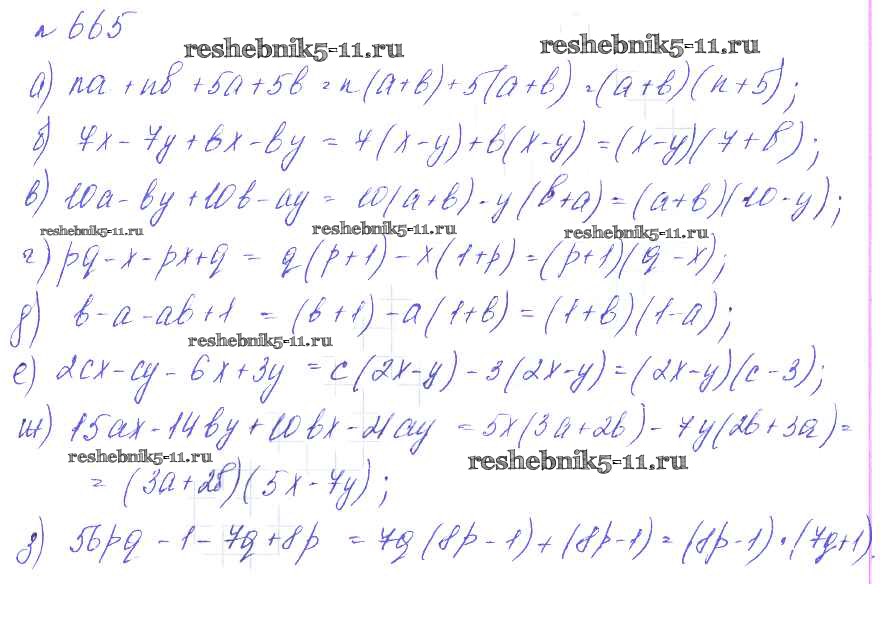 № 665
reshebnik5-11.ru reshebnik5-11.ru
а) na + nb + 5a + 5b = n(a+b) + 5(a+b) = (a+b)(n+5);
б) 7x - 7y + bx - by = 7(x-y) + b(x-y) = (x-y)(7+b);
в) 10a - by + 10b - ay = 10(a+b) - y(b+a) = (a+b)(10-y);
reshebnik5-11.ru reshebnik5-11.ru reshebnik5-11.ru
г) pq - x - px + q = q(p+1) - x(1+p) = (p+1)(q-x);
д) b - a - ab + 1 = (b+1) - a(1+b) = (1+b)(1-a);
reshebnik5-11.ru
е) 2cx - cy - 6x + 3y = c(2x-y) - 3(2x-y) = (2x-y)(c-3);
ж) 15ax - 14by + 10bx - 21ay = 5x(3a+2b) - 7y(2b+3a) =
reshebnik5-11.ru reshebnik5-11.ru
= (3a+2b)(5x-7y);
з) 56pq - 1 - 7q + 8p = 7q(8p-1) + (8p-1) = (8p-1)·(7q+1).